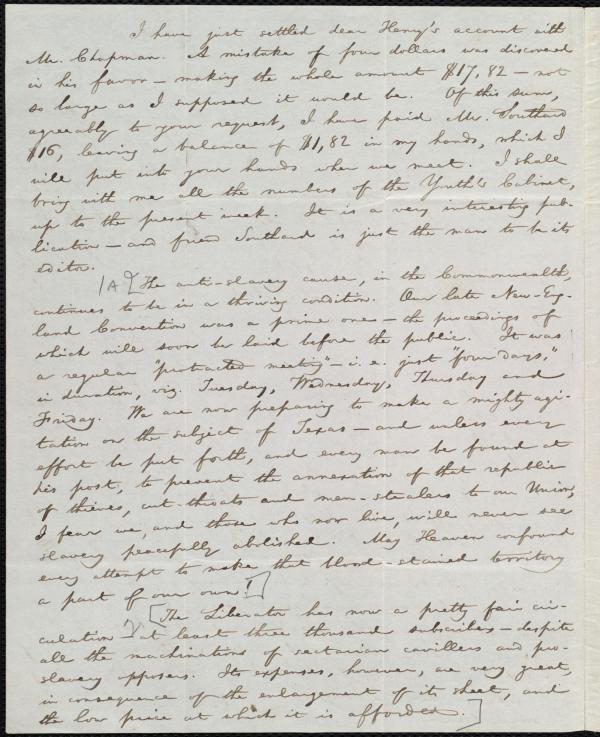 I have just settled dear Henry's account with
Mr. Chapman. A mistake of four dollars was discovered
in his favor — making the whole amount $17,82 — not
so large as I supposed it would be. Of this sum,
agreeably to your request, I have paid Mr. Southard
$16, leaving a balance of $1,82 in my hands, which I
will put into your hands when we meet. I shall
bring with me all the numbers of the Youth's Cabinet,
up to the present week. It is a very interesting pub-
lication — and friend Southard is just the man to be its
editor.
/A/ [The anti-slavery cause, in the Commonwealth,
continues to be in a thriving condition. Our late New-Eng-
land Convention was a prime one — the proceedings of
which will soon be laid before the public. It was
a regular "protracted meeting" — i. e. just "four days,"
in duration, viz. Tuesday, Wednesday, Thursday and
Friday. We are now preparing to make a mighty agi-
tation on the subject of Texas — and unless every
effort be put forth, and every man be found at
his post, to prevent the annexation of that republic
of thieves, cut-throats and men-stealers to our Union,
I fear we, and those who now live, will never see
slavery peacefully abolished. May Heaven confound
every attempt to make that blood-stained territory
a part of our own!]
[The Liberator has now a pretty fair cir-
culation — at least three thousand subscribers — despite
all the machinations of sectarian cavillers and pro-
slavery opposers. Its expenses, however, are very great,
in consequence of the enlargement of its sheet, and
the low price at which it is afforded.]